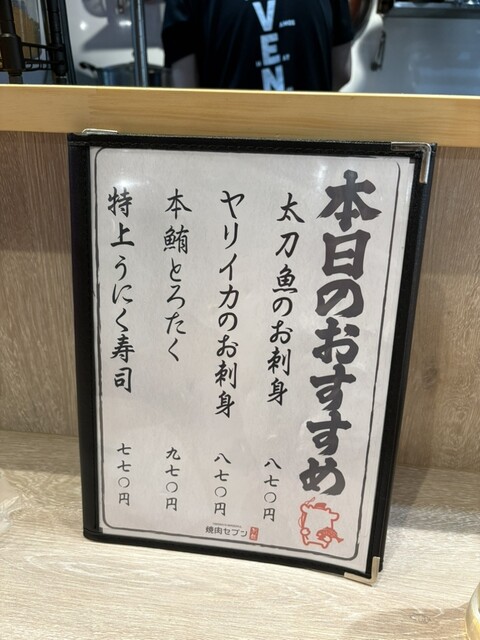 本日のおすすめ
太刀魚のお刺身 八七〇円
ヤリイカのお刺身 八七〇円
本鮪とろたく 九七〇円
特上うにく寿司 七七〇円
焼肉セブン
VEN